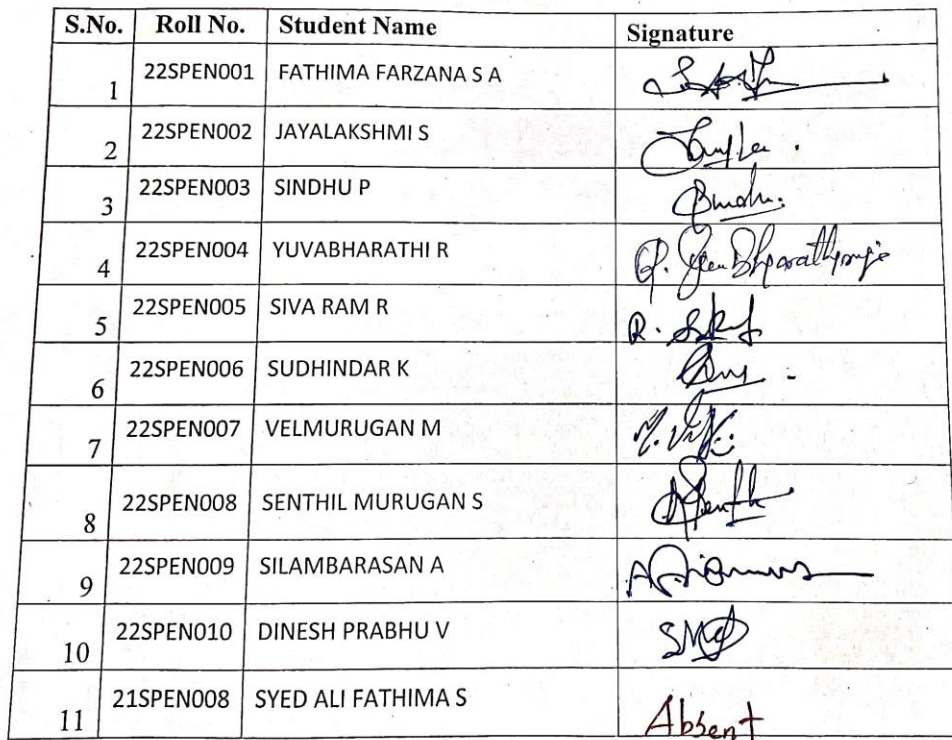 S.No. Roll No. Student Name Signature
1 22SPEN001 FATHIMA FARZANA S A
2 22SPEN002 JAYALAKSHMI S
3 22SPEN003 SINDHU P
4 22SPEN004 YUVABHARATHI R
5 22SPEN005 SIVA RAM R R.
6 22SPEN006 SUDHINDAR K
7 22SPEN007 VELMURUGAN M
8 22SPEN008 SENTHIL MURUGAN S
9 22SPEN009 SILAMBARASAN A
10 22SPEN010 DINESH PRABHU V
11 21SPEN008 SYED ALI FATHIMA S Absent